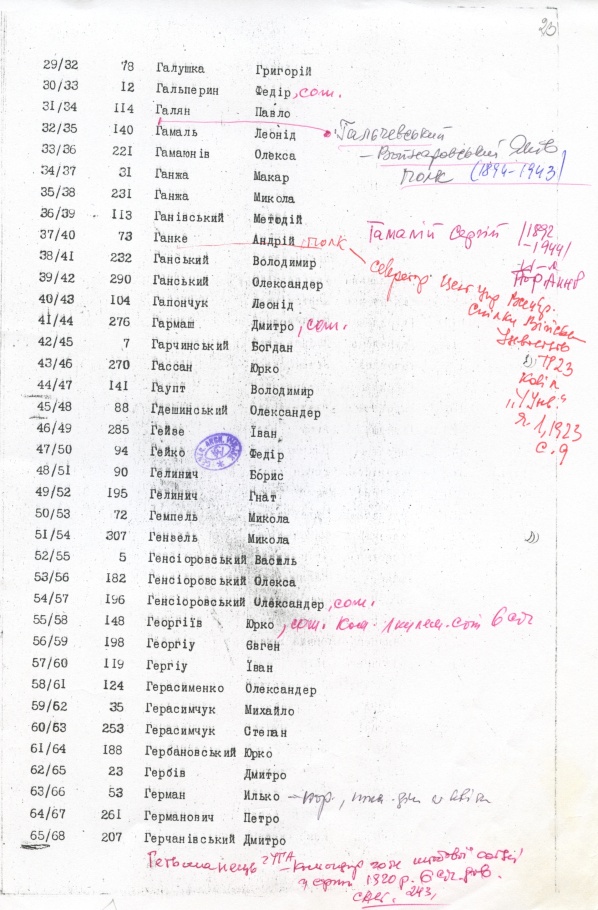 23
29/32 78 Галушка Григорій
30/33 12 Гальперин Федір, сот.
31/34 114 Галян Павло
32/35 140 Гамаль Леонід Гальчевський
33/36 221 Гамаюнів Олекса – Войнаровський Яків
34/37 31 Ганжа Макар полк (1894-1943)
35/38 231 Ганжа Микола
36/39 113 Ганівський Методій
37/40 73 Ганке Андрій полк Гамалій Сергій /1892
-1944/
38/41 232 Ганський Володимир
39/42 290 Ганський Олександер
40/43 104 Гапончук Леонід
41/44 276 Гармаш Дмитро, сот.
42/45 7 Гарчинський Богдан
43/46 270 Гассан Юрко
44/47 141 Гаупт Володимир
45/48 88 Гдешинський Олександер
46/49 285 Гейве Іван
47/50 94 Гейко Федір
48/51 90 Гелинич Борис
49/52 195 Гелинич Гнат
50/53 72 Гемпель Микола
51/54 307 Генвель Микола
52/55 5 Генсіоровський Василь
53/56 182 Генсіоровський Олекса
54/57 196 Генсіоровський Олександер, сот.
55/58 148 Георгіїв Юрко, сот. Ком. 1 кулем. сот 6
56/59 198 Георгіу Євген
57/60 119 Гергіу Їван
58/61 124 Герасименко Олександер
59/62 35 Герасимчук Михайло
60/63 253 Герасимчук Степан
61/64 188 Гербановський Юрко
62/65 23 Гербів Дмитро
63/66 53 Герман Илько
64/67 261 Германович Петро
65/68 207 Герчанівський Дмитро
Гетьманець УГА – командир
1920 р. 6
243,
1923
с. 9